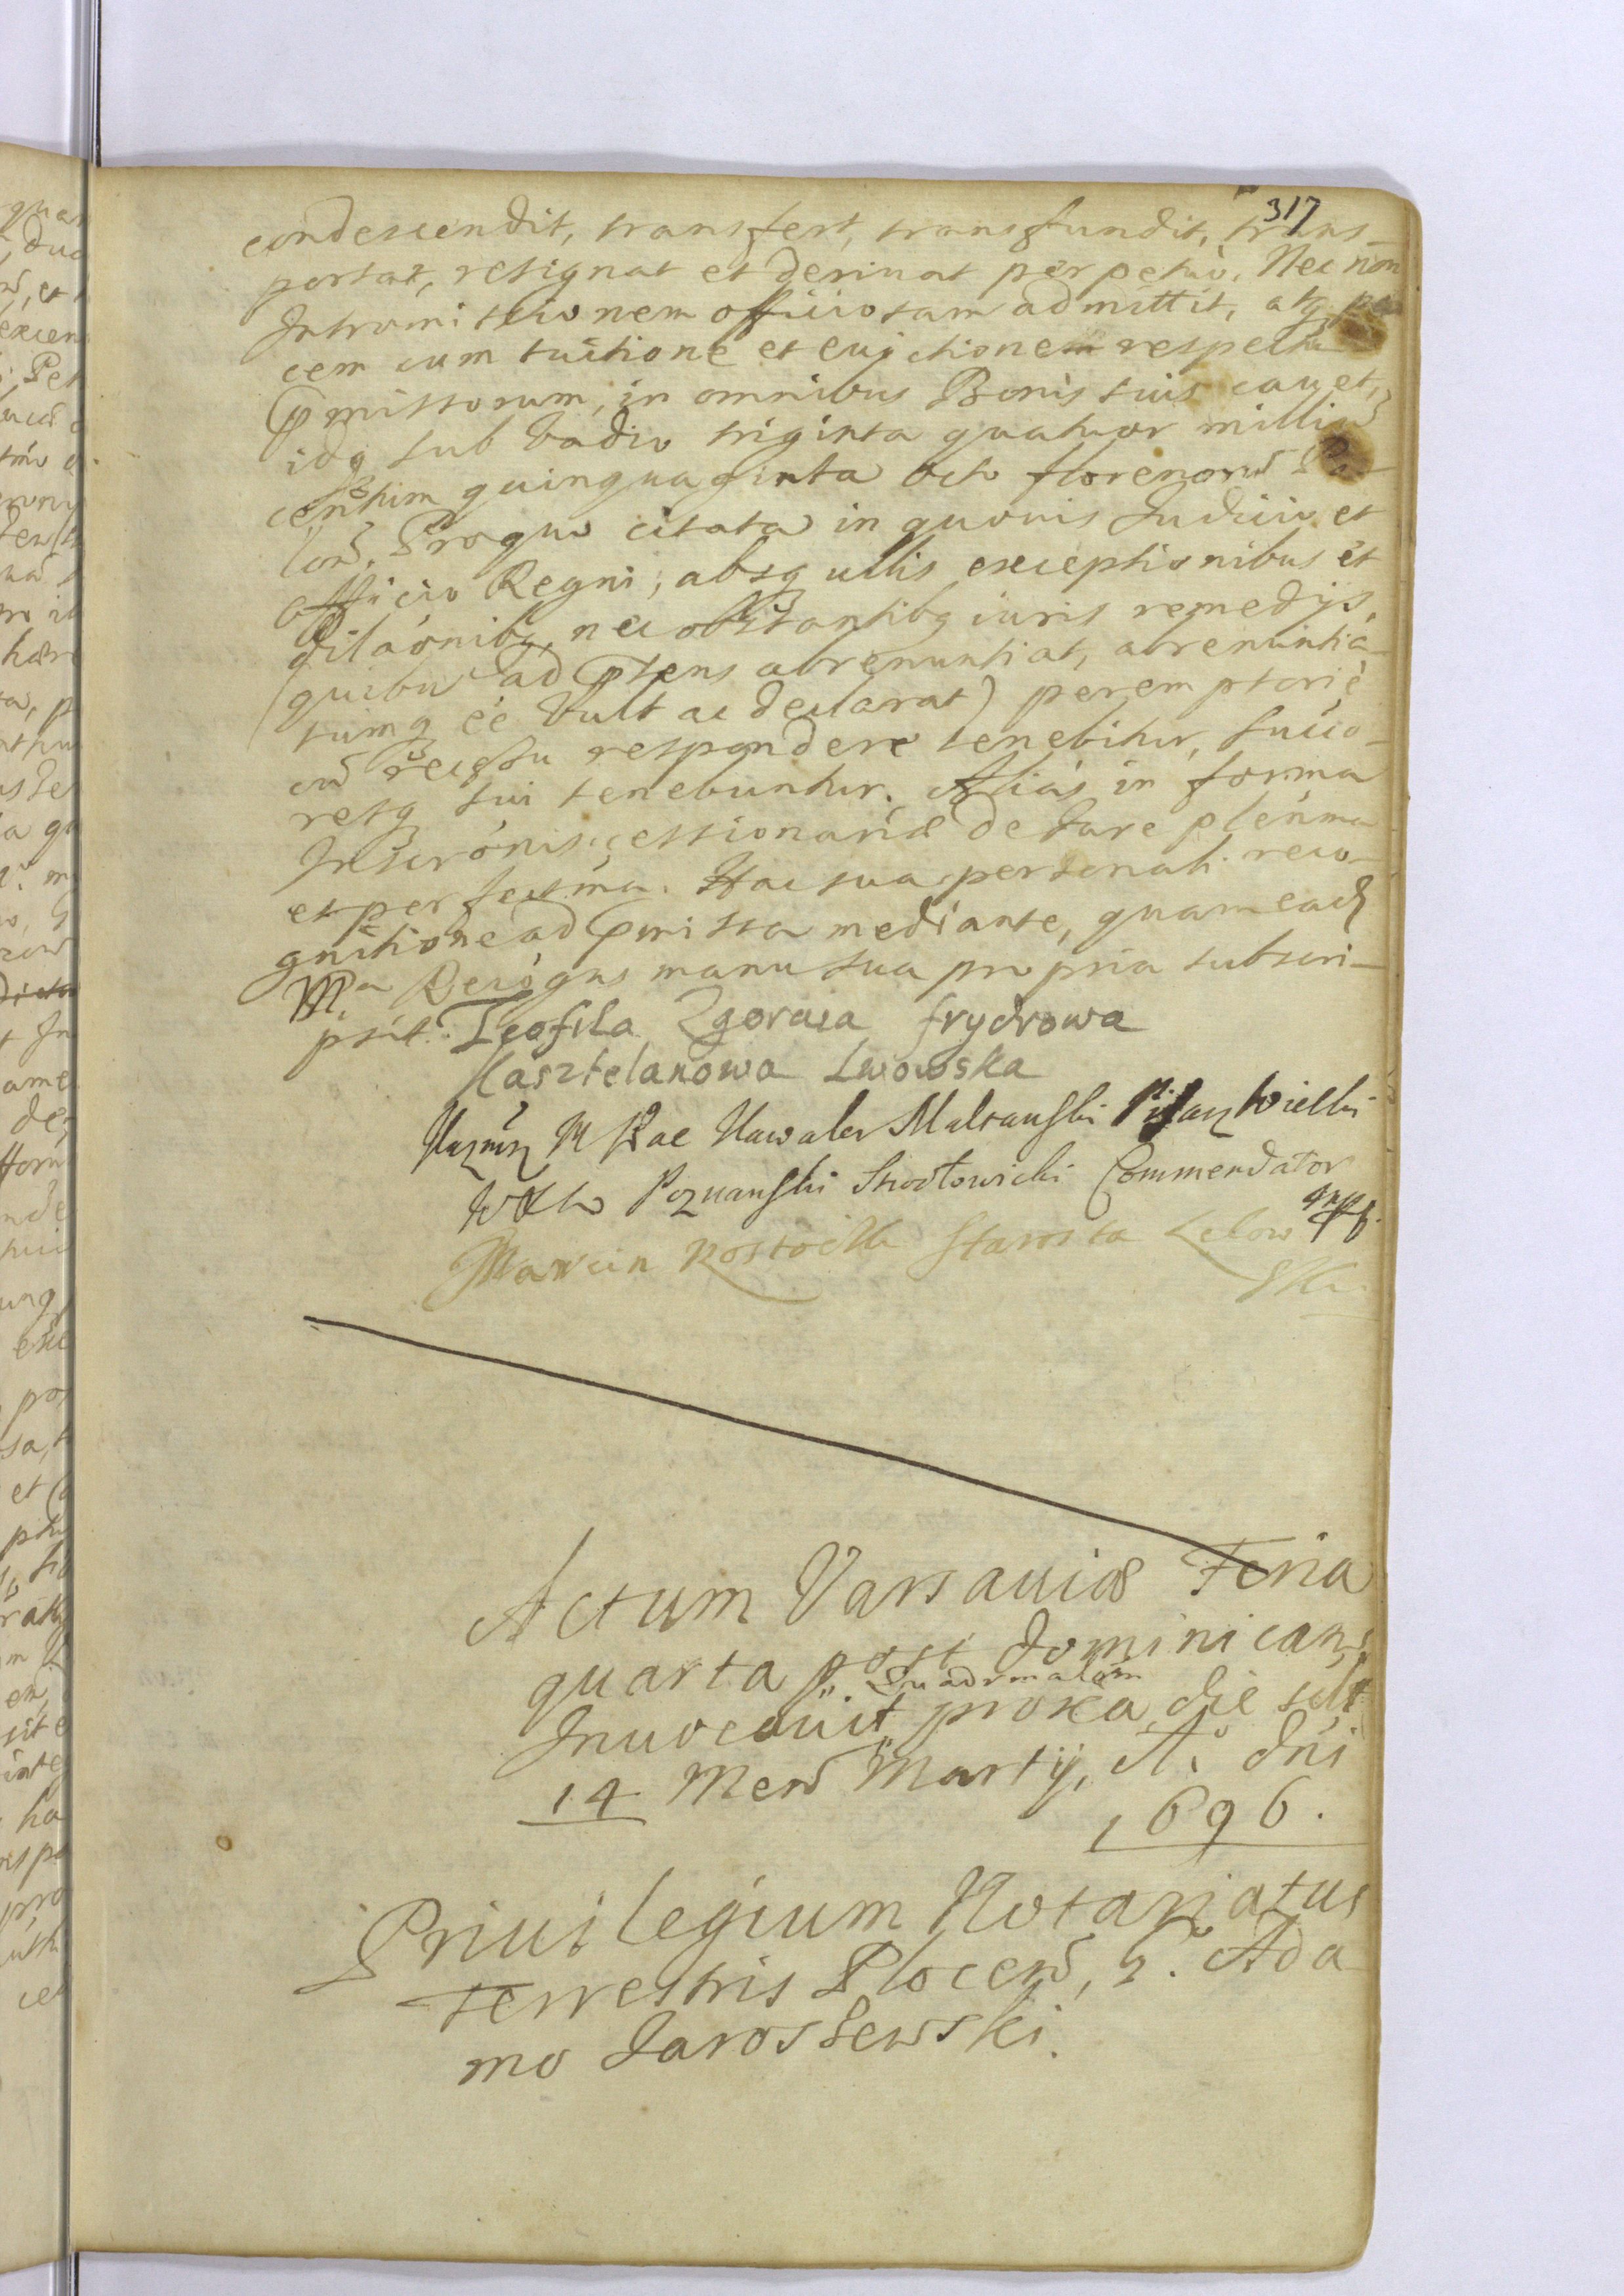 317
condescendit, transfert, transfundit, trans-
portat, resignat et deriuat perpetuò. Nec non
Intromissionem officiosam admittit, atq pa
cem cum tuitione et euictione respectu
pmissorum, in omnibus Bonis suis cauet,
idq sub vadio triginta quatuor millia
centum quinquaginta octo florenorũ Po-
lonˢ. Proquo citata in quouis Iudicio et
Officio Regni, absq ullis exceptionibus et
dilaõnibq, nec obstantibq iuris remedijs,
(quibus ad pñs abrenuntiat, abrenuntia-
tumq eẽ vult ac declarat) peremptoriè
cũ effectu respondere tenebitur, succo-
resq sui tenebuntur. Aliàs in forma
Inscrõnis cessionariæ de Iure pleñma
et perfectma. Hac sua personali reco-
gnitione ad pmissa mediante, quam eadꝫ
M.ca Recõgns manu sua propria subscri-
psit. Teofila Zgoraia frydrowa
Kasztelanowa Lwowska
Kaz̃mrz Kawaler Maltanski Pisarz Wielki
WXLo Poznanski Stwołowicki Commendator
Marcin Kostocki Starosta Lelow
ski
Actum Varsauiæ Feria
quarta post Dominicam
Quadrmalem
Inuocauit proxa, die scilt
14 Mens Martij, A.º dñi
1696.
Priuilegium Notariatus
terrestris Plocens, G. Ada
mo Jaroszewski.